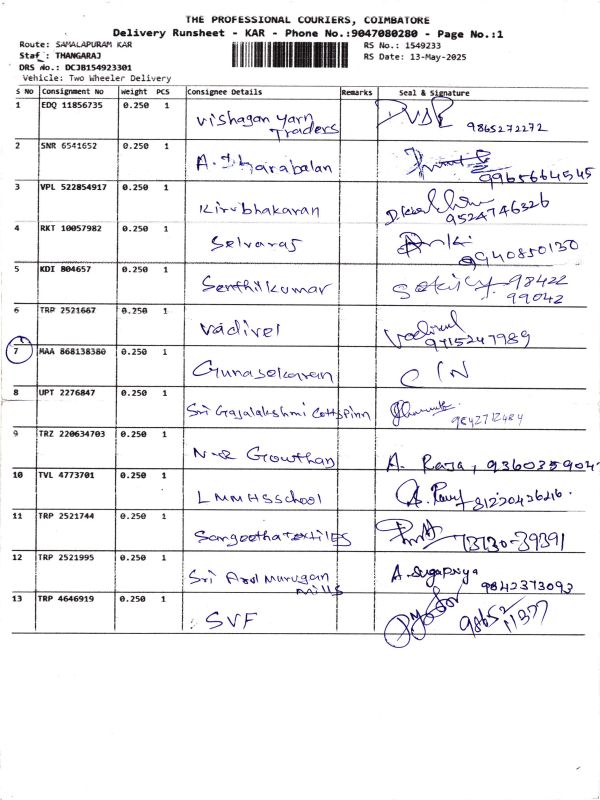 THE PROFESSIONAL COURIERS, COIMBATORE
Delivery Runsheet - KAR - Phone No.:9047080280 - Page No.:1
Route: SAMALAPURAM KAR
RS No.: 1549233
Staf : THANGARAJ
RS Date: 13-May-2025
DRS No.: DCJB154923301
Vehicle: Two Wheeler Delivery
S No Consignment No Weight PCS Consignee Details Remarks Seal & Signature
1 EDQ 11856735 0.250 1 Vishagan yarn Traders 9865272272
2 SNR 6541652 0.250 1 9965664545
3 VPL 522854917 0.250 1 Kirubhakaran 9524746326
4 RKT 10057982 0.250 1 Selvaraj 9940850130
5 KDI 804657 0.250 1 Senthilkumar 98422 99042
6 TRP 2521667 0.250 1 Vadivel 9715247989
7 MAA 868138380 0.250 1 Gunasekaran
8 UPT 2276847 0.250 1 Sri Gajalakshmi Cottspinn 9842712484
9 TRZ 220634703 0.250 1 Gowthan A. Raja, 936035904
10 TVL 4773701 0.250 1 LMMHSschool
11 TRP 2521744 0.250 1 Sangeethatextiles
12 TRP 2521995 0.250 1 Sri Arul Murugan Mills A. Sugapriya 9842373093
13 TRP 4646919 0.250 1 SVF 98652 11377